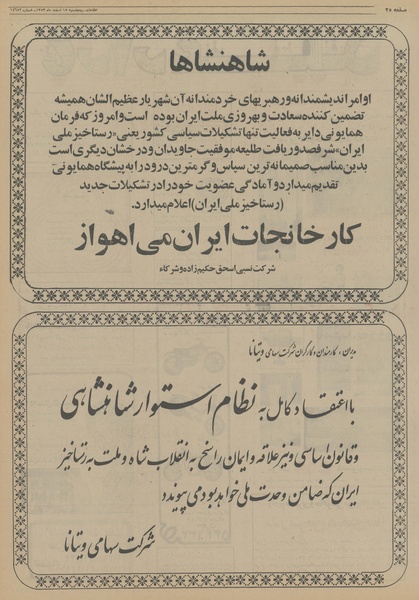 صفحه ۲۰
شاهنشاها
اوامر اندیشمندانه و رهبریهای خردمندانه آن شهریار عظیم‌الشان همیشه
تضمین کننده سعادت و بهروزی ملت ایران بوده است و امروز که فرمان
همایونی دایر به فعالیت تنها تشکیلات سیاسی کشور یعنی «رستاخیز ملی
ایران» شرفصدور یافت طلیعه موفقیت جاویدان و درخشان دیگری است
بدین مناسبت صمیمانه ترین سپاس و گرمترین درود را به پیشگاه همایونی
تقدیم میدارد و آمادگی عضویت خود را در تشکیلات جدید
(رستاخیز ملی ایران) اعلام میدارد.
کارخانجات ایران می اهواز
شرکت نسبی اسحق حکیم زاده و شرکاء
مدیران، کارمندان و کارگران شرکت سهامی ویتانا
با اعتقاد کامل به نظام استوار شاهنشاهی
و قانون اساسی و نیز علاقه و ایمان راسخ به انقلاب شاه و ملت به رستاخیز
ایران که ضامن وحدت ملی خواهد بود می پیوندد
شرکت سهامی ویتانا